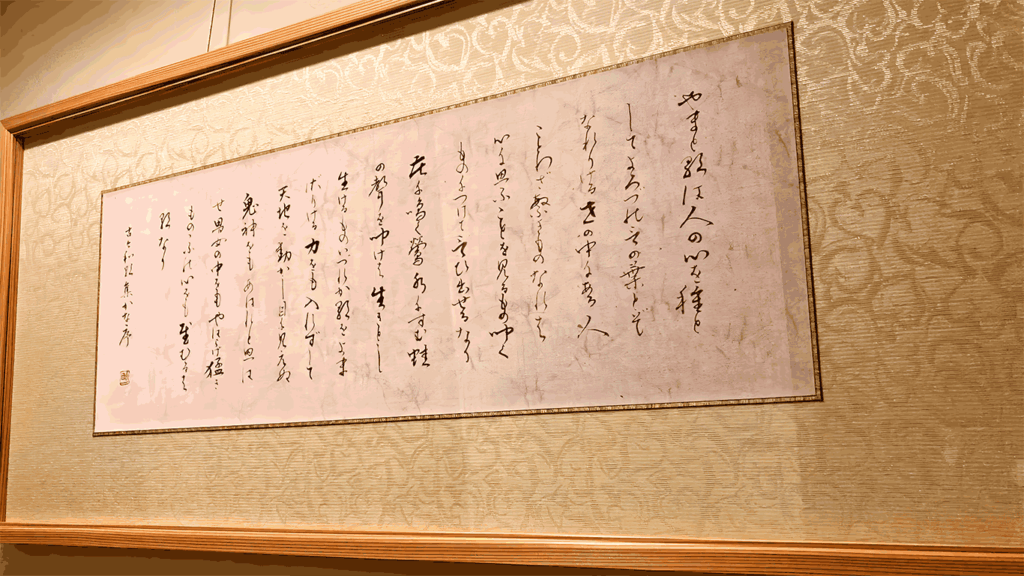 やまと歌は人の心を種と
してよろづの言の葉とぞ
なれりける世の中にある人
ことわざ繁きものなれば
心に思ふことを見るもの聞く
ものにつけて言ひ出せるなり
花に鳴く鶯水にすむ蛙
の声を聞けば生きとし
生けるものいづれか歌をよま
ざりける力をも入れずして
天地を動かし目に見えぬ
鬼神をもあはれと思は
せ男女の中をもやはらげ猛き
もののふの心をも慰むるは
歌なり
古今和歌集 序